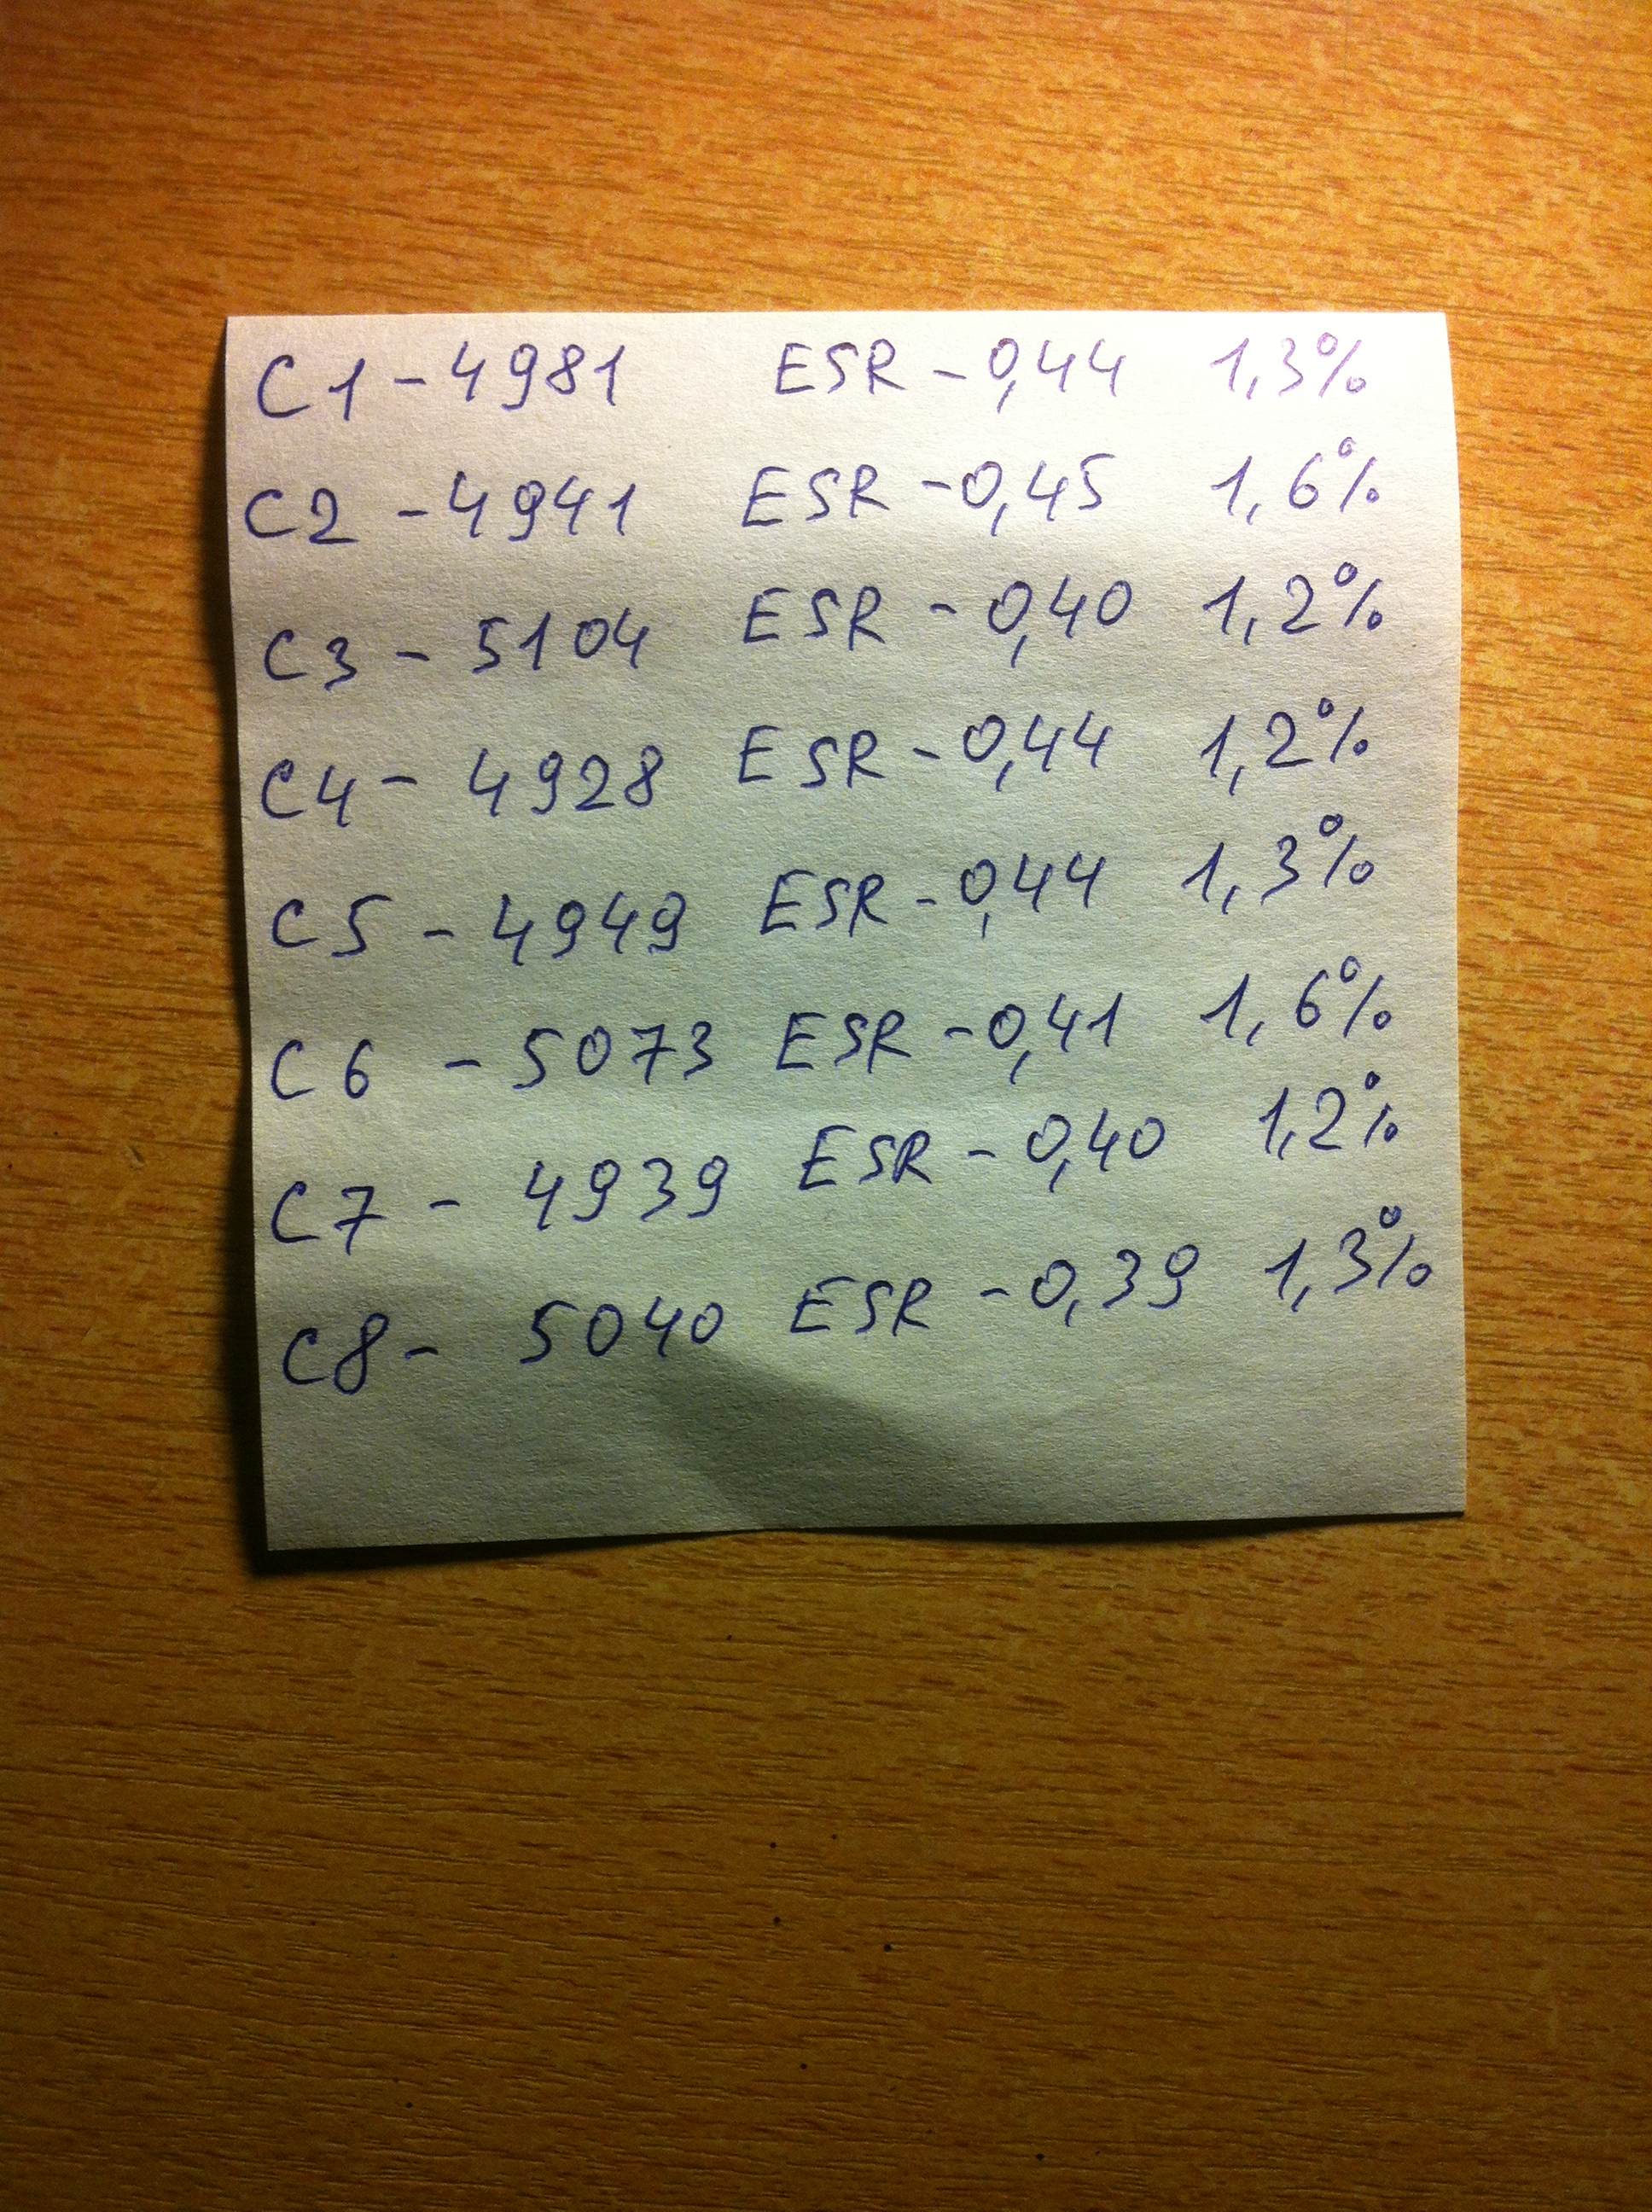 C1 - 4981 ESR - 0,44 1,3%
C2 - 4941 ESR - 0,45 1,6%
C3 - 5104 ESR - 0,40 1,2%
C4 - 4928 ESR - 0,44 1,2%
C5 - 4949 ESR - 0,44 1,3%
C6 - 5073 ESR - 0,41 1,6%
C7 - 4939 ESR - 0,40 1,2%
C8 - 5040 ESR - 0,39 1,3%